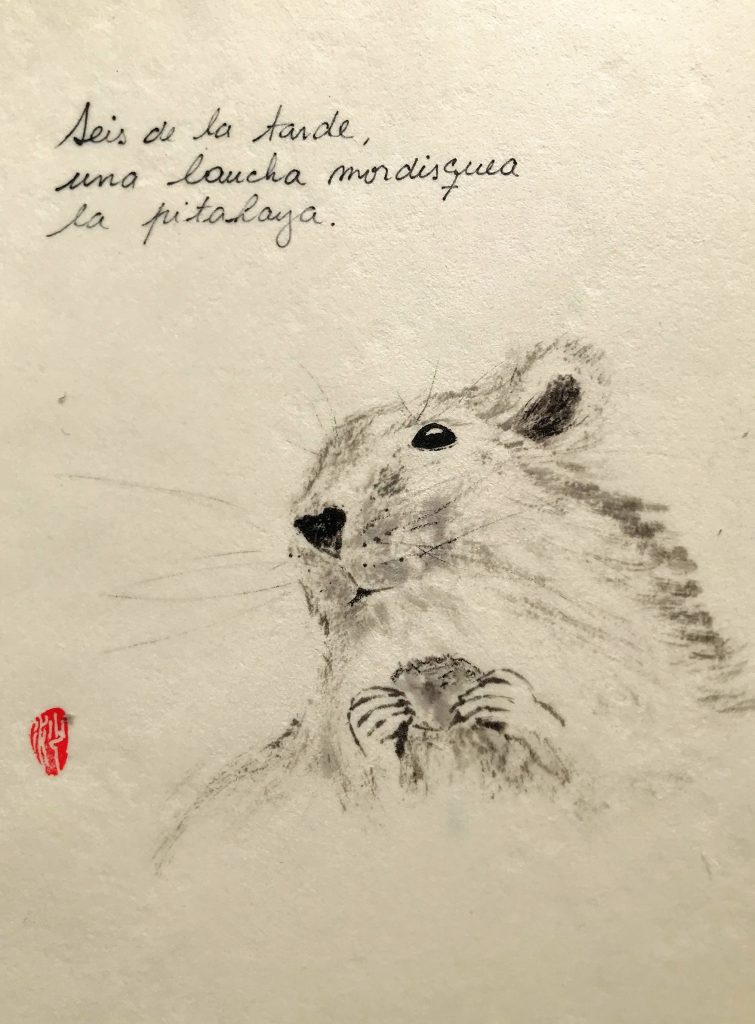 Seis de la tarde,
una laucha mordisquea
la pitahaya.